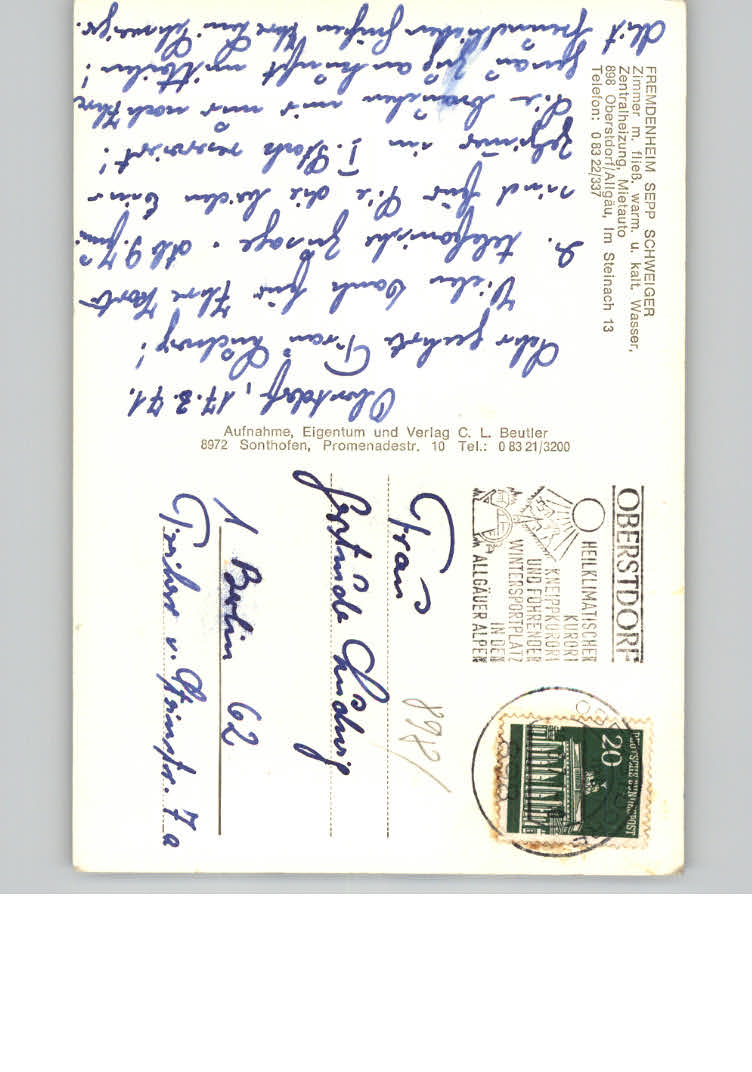 FREMDENHEIM SEPP SCHWEIGER
Zimmer m. fließ. warm. u. kalt. Wasser,
Zentralheizung, Mietauto
898 Oberstdorf/Allgäu, Im Steinach 13
Telefon: 0 83 22/337
Oberstdorf, 17.3.71.
Sehr geehrte Frau Ludwig!
Vielen Dank für Ihre Karte
u. telefonische Zusage. Ab 9. Juni
sind für Sie die beiden Einer
Zimmer im I. Stock reserviert!
Sie brauchen mir nur noch Ihre
genau Zug ankunft mitteilen!
Mit freundlichen Grüßen Ihre Fam Schweiger.
Aufnahme, Eigentum und Verlag C. L. Beutler
8972 Sonthofen, Promenadestr. 10 Tel.: 0 83 21/3200
OBERSTDORF
HEILKLIMATISCHER
KURORT
KNEIPPKURORT
UND FÜHRENDER
WINTERSPORTPLATZ
IN DEN
ALLGÄUER ALPEN
DEUTSCHE BUNDESPOST
20
898/
Frau
Gertrude Ludwig
1 Berlin 62
Freiherr v. Steinstr. 7a